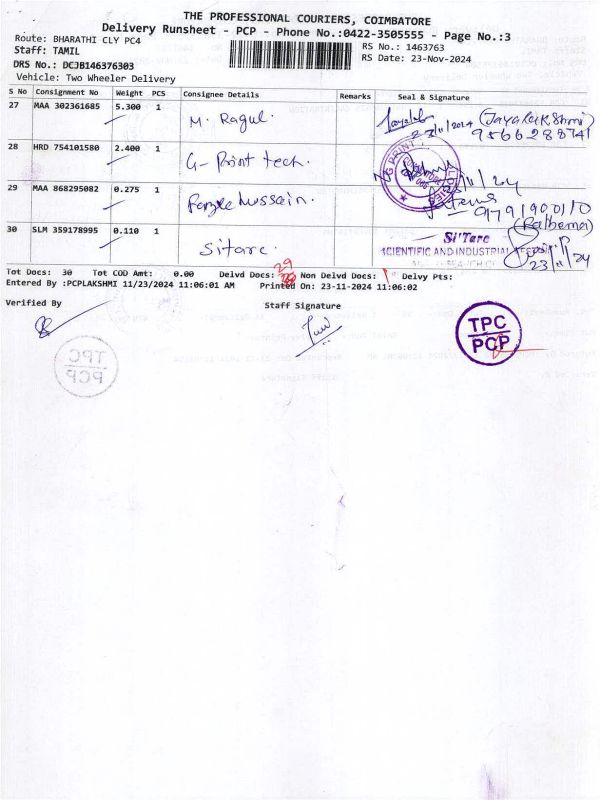 THE PROFESSIONAL COURIERS, COIMBATORE
Delivery Runsheet - PCP - Phone No.:0422-3505555 - Page No.:3
Route: BHARATHI CLY PC4
RS No.: 1463763
Staff: TAMIL
RS Date: 23-Nov-2024
DRS No.: DCJB146376303
Vehicle: Two Wheeler Delivery
S No Consignment No Weight PCS Consignee Details Remarks Seal & Signature
27 MAA 302361685 5.300 1 M. Ragul. (Jayalakshmi)
9566288741
28 HRD 754101580 2.400 1 G-Print tech.
G PRINT
29 MAA 868295082 0.275 1 hussain. 9791900110
(Rathema)
30 SLM 359178995 0.110 1 Sitarc. Si'Tarc
SCIENTIFIC AND INDUSTRIAL TESTING
23/11/24
Tot Docs: 30 Tot COD Amt: 0.00 Delvd Docs: 29 Non Delvd Docs: 1 Delvy Pts:
Entered By :PCPLAKSHMI 11/23/2024 11:06:01 AM Printed On: 23-11-2024 11:06:02
Verified By Staff Signature
TPC
PCP